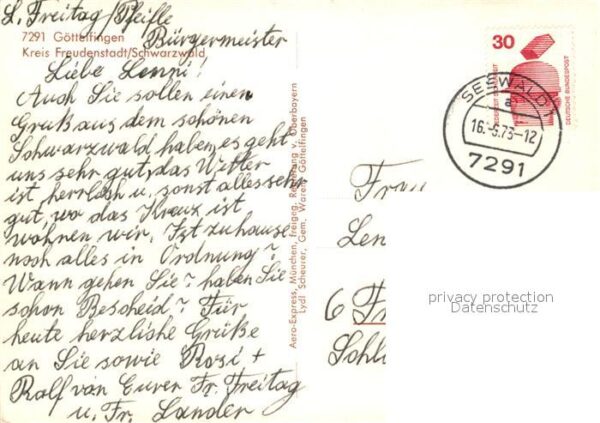 L. Freitag / Pfeifle
Bürgermeister
7291 Göttelfingen
Kreis Freudenstadt/Schwarzwald
Liebe Lenni!
Auch Sie sollen einen
Gruß aus dem schönen
Schwarzwald haben, es geht
uns sehr gut, das Wetter
ist herrlich u. sonst alles sehr
gut, wo das Kreuz ist
wohnen wir. Ist zuhause
noch alles in Ordnung?
Wann gehen Sie? haben Sie
schon Bescheid? Für
heute herzliche Grüße
an Sie sowie Rosi +
Ralf von Eurer Fr. Freitag
u. Fr. Lander
Aero-Express, München, freigeg. Regierung v. Oberbayern
Lydl Scheurer, Gem. Waren, Göttelfingen
30
DEUTSCHE BUNDESPOST
SEEWALD 1
a
16.-5.73-12
7291
Frau
Len
6 Fr
Schl
privacy protection
Datenschutz